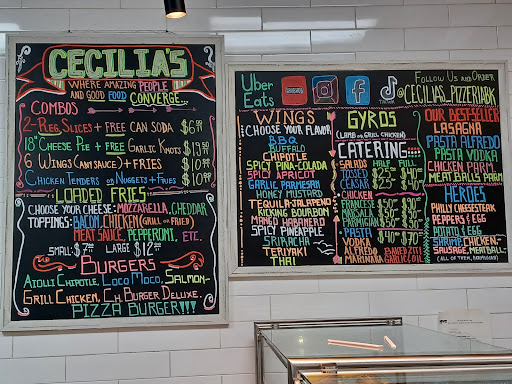 CECILIA'S
WHERE AMAZING PEOPLE
AND GOOD FOOD CONVERGE...
COMBOS
2-REG. SLICES + FREE CAN SODA $6.99
18" CHEESE PIE + FREE GARLIC KNOTS
6 WINGS (ANY SAUCE) + FRIES
CHICKEN TENDERS OR NUGGETS + FRIES
LOADED FRIES
CHOOSE YOUR CHEESE: MOZZARELLA, CHEDDAR
TOPPINGS: BACON, CHICKEN (GRILL OR FRIED)
MEAT SAUCE, PEPPERONI, ETC.
SMALL: LARGE
BURGERS
AIOLI CHIPOTLE, LOCO MOCO, SALMON-
GRILL CHICKEN, CH. BURGER DELUXE,
PIZZA BURGER!!!
Uber
Eats
FOLLOW US AND ORDER
@CECILIAS_PIZZERIABK
WINGS
CHOOSE YOUR FLAVOR
BBQ
BUFFALO
CHIPOTLE
SPICY PINA-COLADA
SPICY APRICOT
GARLIC PARMESAN
HONEY MUSTARD
TEQUILA-JALAPENO
KICKING BOURBON
MANGO HABANERO
SPICY PINEAPPLE
SRIRACHA
TERIYAKI
THAI
GYROS
(LAMB OR GRILL CHICKEN)
CATERING
SALADS HALF FULL
TOSSED $25 $40
CEASAR $25 $40
CHICKEN
FRANCESE
MARSALA
PARMIGIAN
PASTA
VODKA
ALFREDO
MARINARA GARLIC & OIL
OUR BESTSELLER
LASAGNA
PASTA ALFREDO
PASTA VODKA
CHICKEN PARM
MEATBALLS PARM
HEROES
PHILLY CHEESESTEAK
PEPPERS & EGG
POTATO & EGG
SHRIMP, CHICKEN-
SAUSAGE, MEATBALL-
(ALL OF THEM, PARMIGIAN)